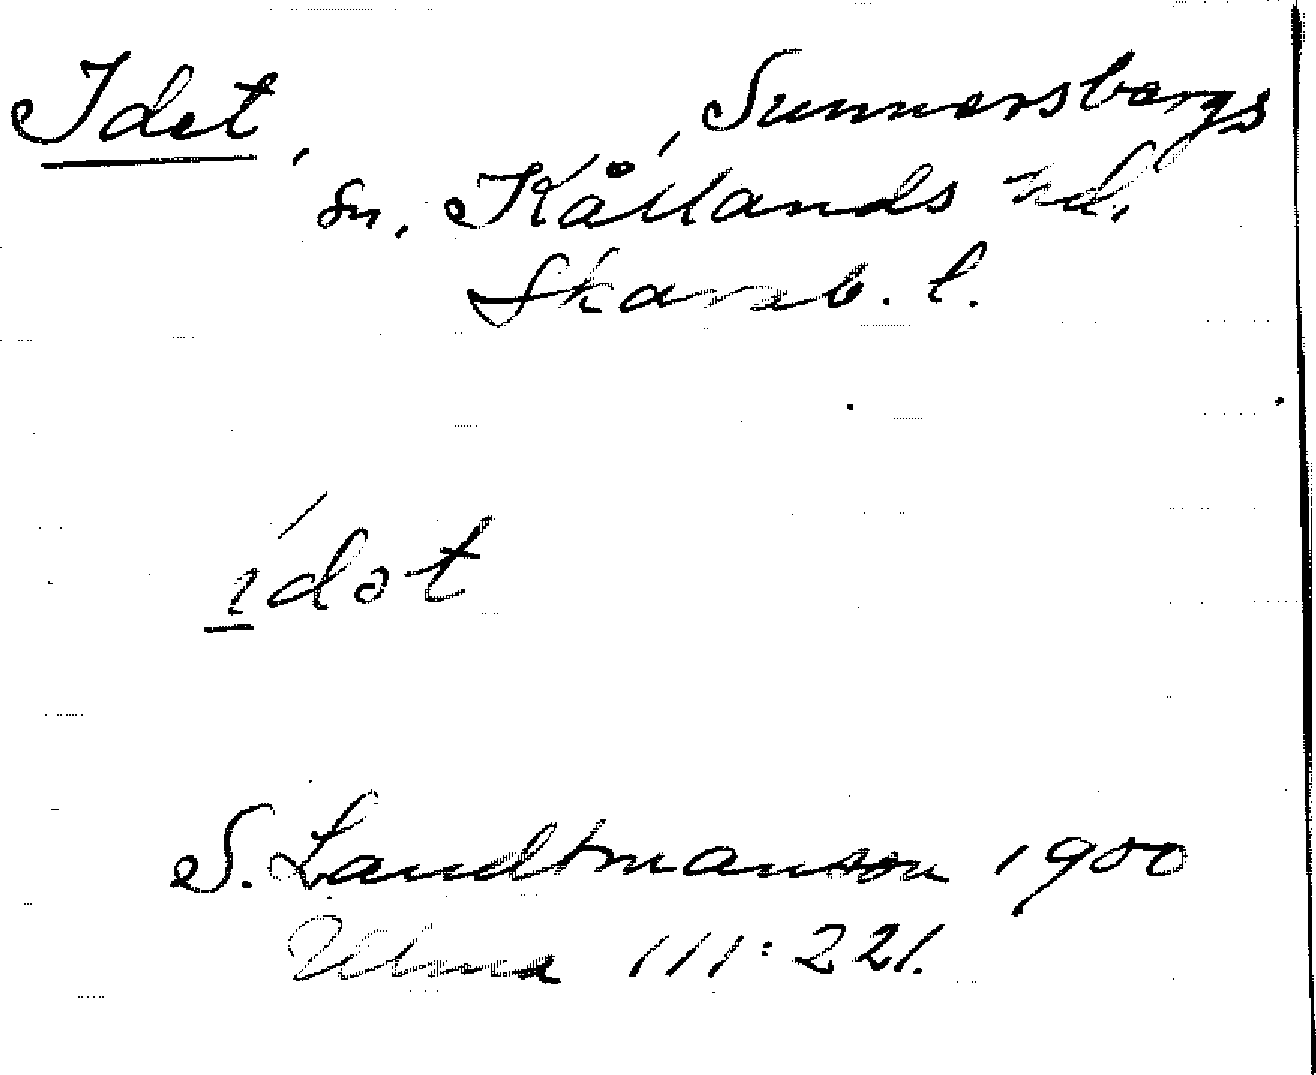 Idet, Sunnersbergs
sn, Kållands hd,
Skarab. l.
ídət
S. Landtmanson 1900
Ulma 111:221.